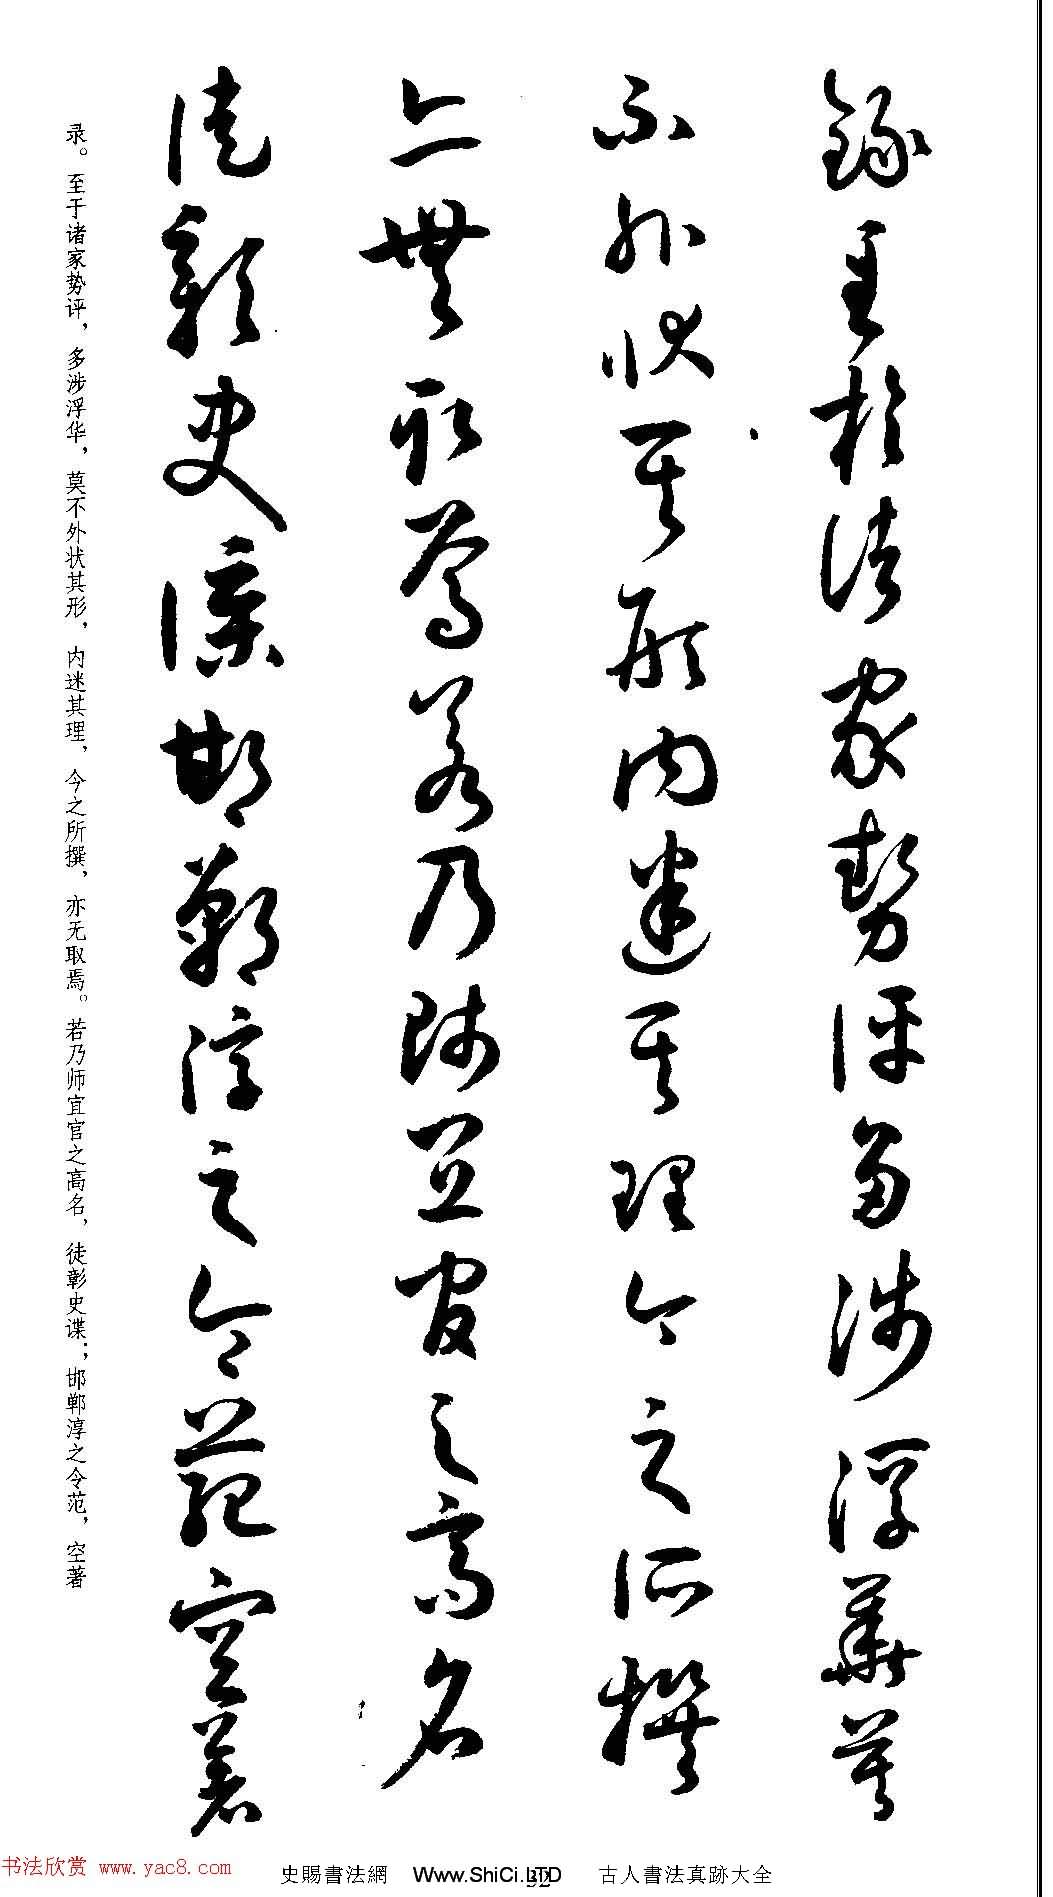 錄至於諸家勢評多涉浮華莫
不外狀其形內迷其理今之所撰
亦無取焉若乃師宜官之高名
徒彰史諜邯鄲淳之令範空著
录。至于诸家势评，多涉浮华，莫不外状其形，内迷其理，今之所撰，亦无取焉。若乃师宜官之高名，徒彰史谍；邯郸淳之令范，空著
书法欣赏 www.yac8.com
史賜書法網 Www.ShiCi.LTD 古人書法真跡大全
32